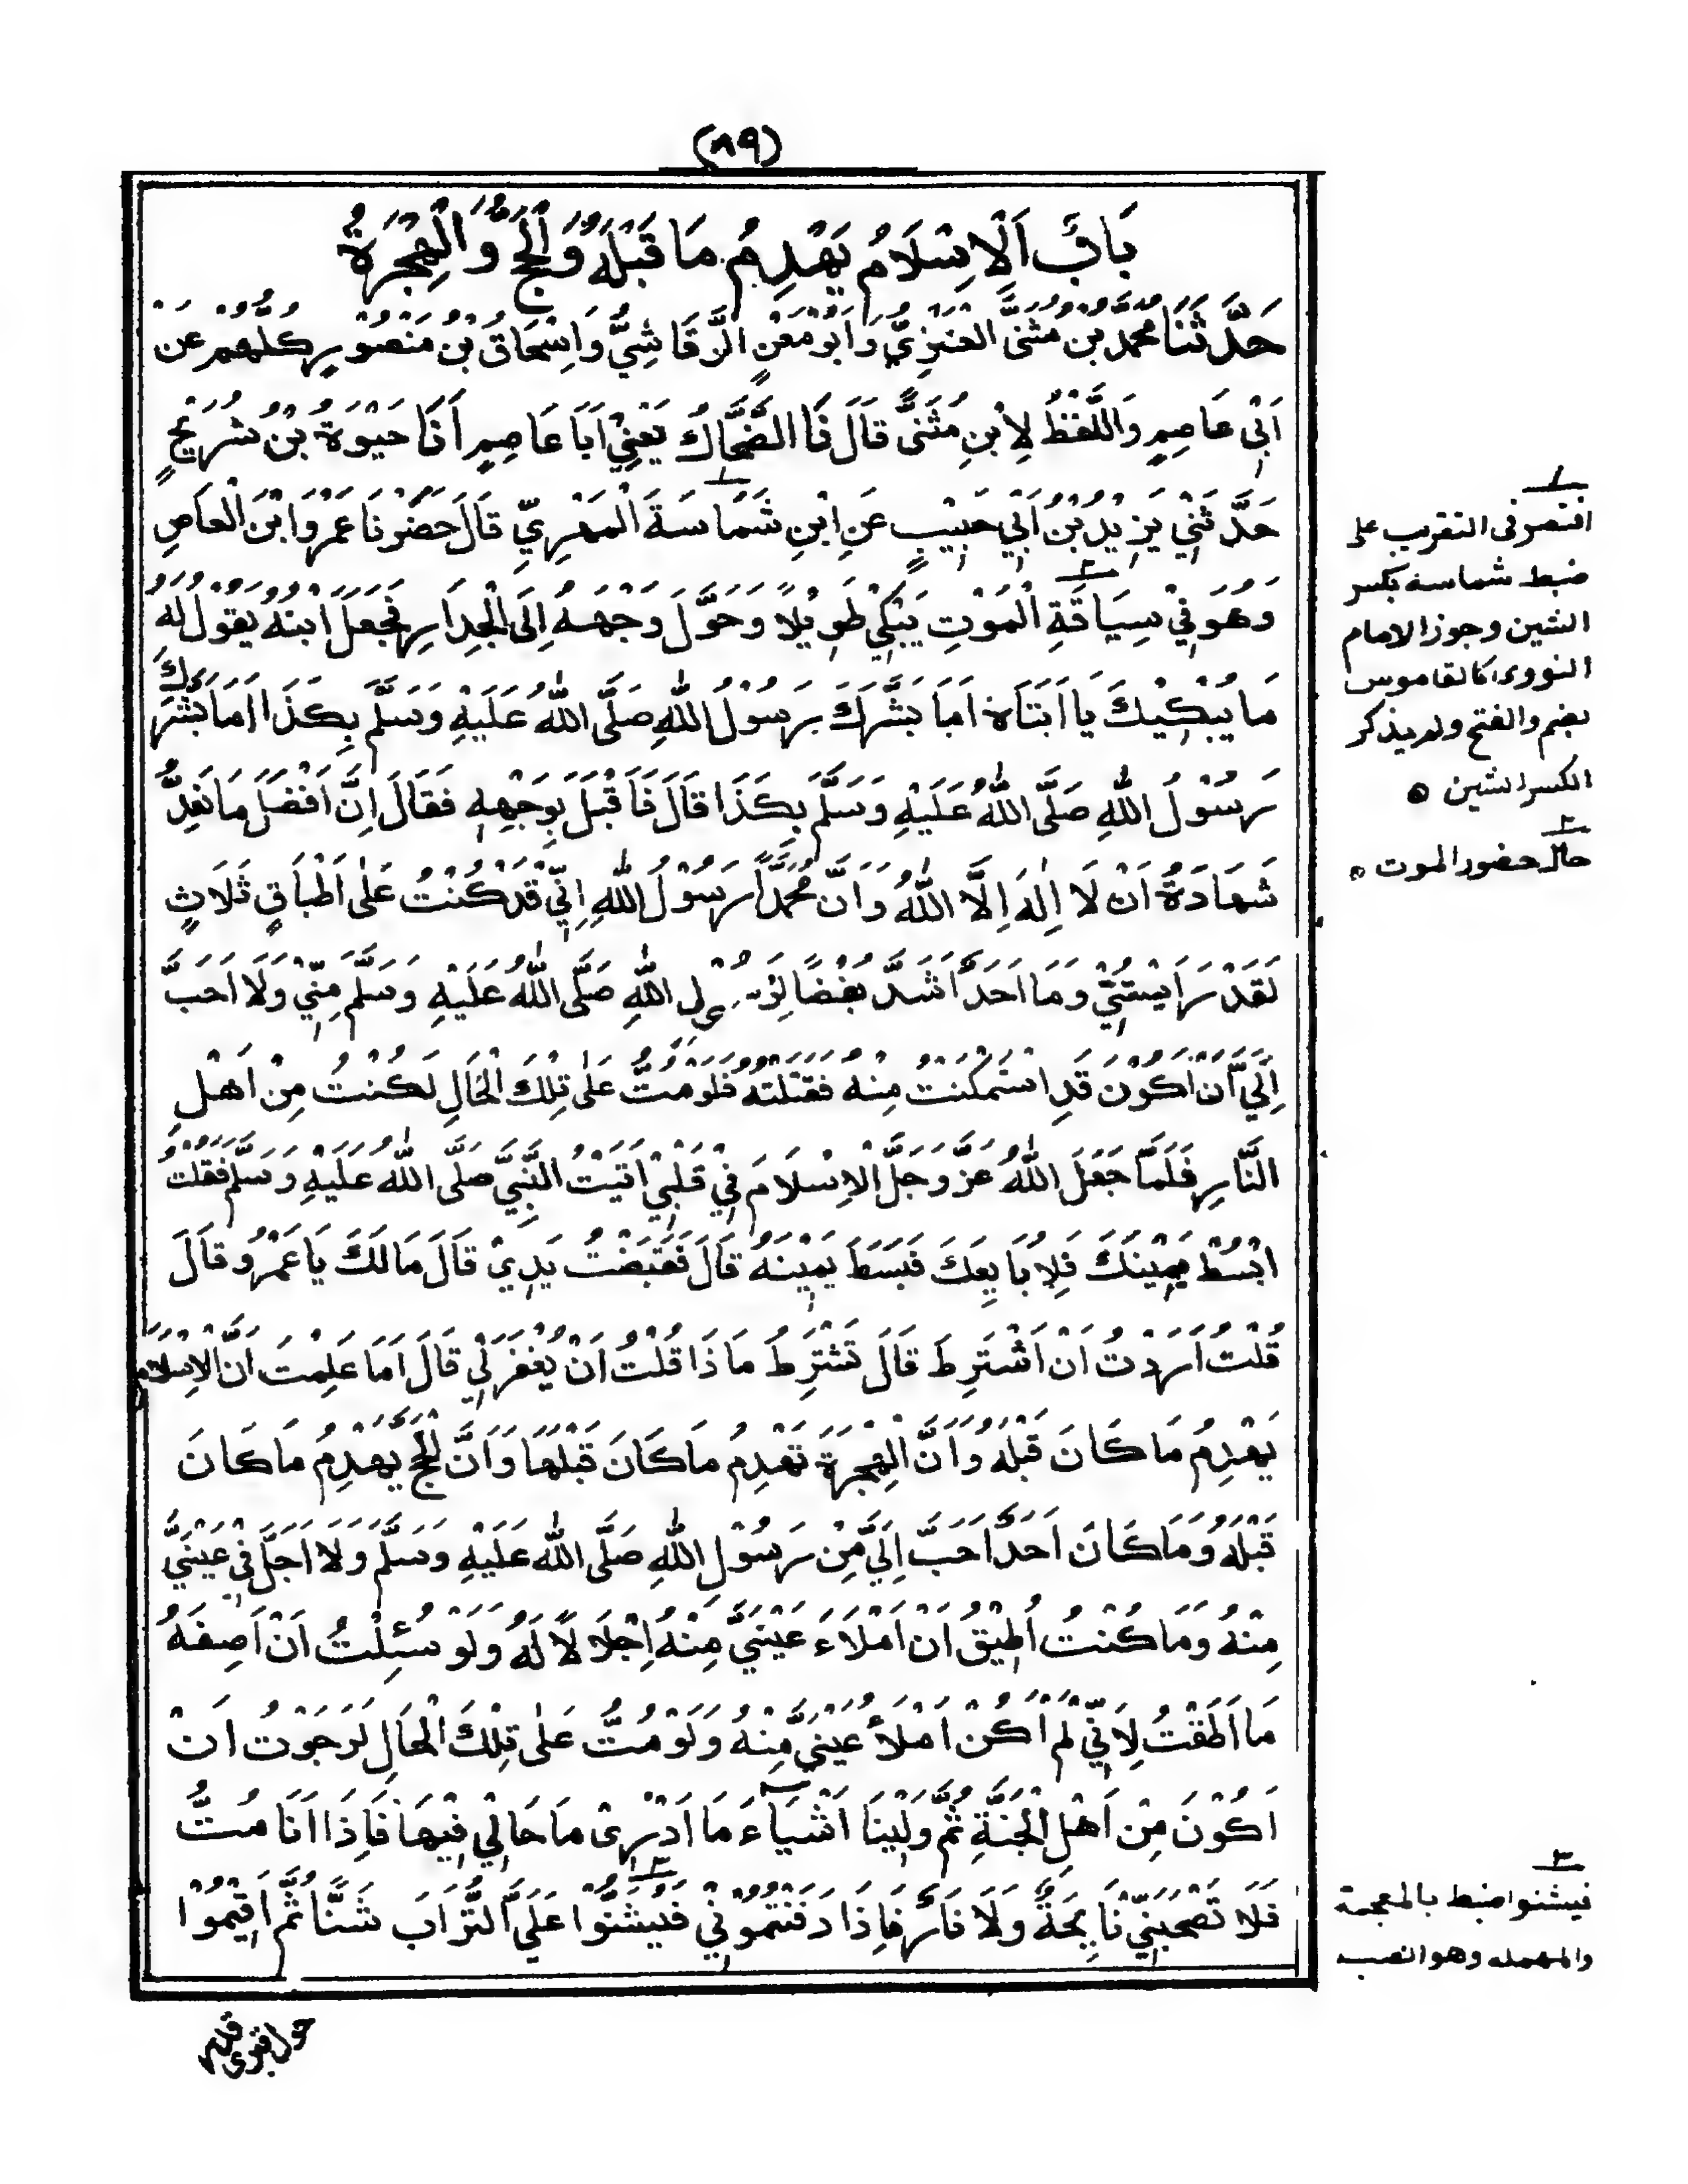 (٨٩)
بَابٌ اَلْاِسْلَامُ يَهْدِمُ مَا قَبْلَهُ وَالْحَجُّ وَالْهِجْرَةُ
حَدَّثَنَا مُحَمَّدُ بْنُ مُثَنَّى الْعَنَزِيُّ وَاَبُوْ مَعْنٍ الرَّقَاشِيُّ وَاِسْحَاقُ بْنُ مَنْصُوْرٍ كُلُّهُمْ عَنْ
اَبِي عَاصِمٍ وَاللَّفْظُ لِاِبْنِ مُثَنًّى قَالَ نَا الضَّحَّاكُ يَعْنِيْ اَبَا عَاصِمٍ اَنَا حَيْوَةُ بْنُ شُرَيْحٍ
حَدَّثَنِيْ يَزِيْدُ بْنُ اَبِيْ حَبِيْبٍ عَنِ ابْنِ شَمَاسَةَ الْمَهْرِيِّ قَالَ حَضَرْنَا عَمْرَوا بْنَ الْعَاصِ
وَهُوَ فِيْ سِيَاقَةِ الْمَوْتِ يَبْكِيْ طَوِيْلًا وَحَوَّلَ وَجْهَهُ اِلَى الْجِدَارِ فَجَعَلَ ابْنُهُ يَقُوْلُ لَهُ
مَا يُبْكِيْكَ يَا اَبَتَاهْ اَمَا بَشَّرَكَ رَسُوْلُ اللّٰهِ صَلَّى اللّٰهُ عَلَيْهِ وَسَلَّمَ بِكَذَا اَمَا بَشَّرَكَ
رَسُوْلُ اللّٰهِ صَلَّى اللّٰهُ عَلَيْهِ وَسَلَّمَ بِكَذَا قَالَ فَاَقْبَلَ بِوَجْهِهٖ فَقَالَ اِنَّ اَفْضَلَ مَا نُعِدُّ
شَهَادَةُ اَنْ لَا اِلٰهَ اِلَّا اللّٰهُ وَاَنَّ مُحَمَّدًا رَسُوْلُ اللّٰهِ اِنِّيْ قَدْ كُنْتُ عَلٰى اَطْبَاقٍ ثَلَاثٍ
لَقَدْ رَاَيْتُنِيْ وَمَا اَحَدٌ اَشَدَّ بُغْضًا لِرَسُوْلِ اللّٰهِ صَلَّى اللّٰهُ عَلَيْهِ وَسَلَّمَ مِنِّيْ وَلَا اَحَبَّ
اِلَيَّ اَنْ اَكُوْنَ قَدِ اسْتَمْكَنْتُ مِنْهُ فَقَتَلْتُهُ فَلَوْ مُتُّ عَلٰى تِلْكَ الْحَالِ لَكُنْتُ مِنْ اَهْلِ
النَّارِ فَلَمَّا جَعَلَ اللّٰهُ عَزَّ وَجَلَّ الْاِسْلَامَ فِيْ قَلْبِيْ اَتَيْتُ النَّبِيَّ صَلَّى اللّٰهُ عَلَيْهِ وَسَلَّمَ فَقُلْتُ
ابْسُطْ يَمِيْنَكَ فَلِاُبَايِعَكَ فَبَسَطَ يَمِيْنَهُ قَالَ فَقَبَضْتُ يَدِيْ قَالَ مَا لَكَ يَا عَمْرُو قَالَ
قُلْتُ اَرَدْتُ اَنْ اَشْتَرِطَ قَالَ تَشْتَرِطُ مَاذَا قُلْتُ اَنْ يُغْفَرَ لِيْ قَالَ اَمَا عَلِمْتَ اَنَّ الْاِسْلَامَ
يَهْدِمُ مَا كَانَ قَبْلَهُ وَاَنَّ الْهِجْرَةَ تَهْدِمُ مَا كَانَ قَبْلَهَا وَاَنَّ الْحَجَّ يَهْدِمُ مَا كَانَ
قَبْلَهُ وَمَا كَانَ اَحَدٌ اَحَبَّ اِلَيَّ مِنْ رَسُوْلِ اللّٰهِ صَلَّى اللّٰهُ عَلَيْهِ وَسَلَّمَ وَلَا اَجَلَّ فِيْ عَيْنَيَّ
مِنْهُ وَمَا كُنْتُ اُطِيْقُ اَنْ اَمْلَاءَ عَيْنَيَّ مِنْهُ اِجْلَالًا لَهُ وَلَوْ سُئِلْتُ اَنْ اَصِفَهُ
مَا اَطَقْتُ لِاَنِّيْ لَمْ اَكُنْ اَمْلَأُ عَيْنَيَّ مِنْهُ وَلَوْ مُتُّ عَلٰى تِلْكَ الْحَالِ لَرَجَوْتُ اَنْ
اَكُوْنَ مِنْ اَهْلِ الْجَنَّةِ ثُمَّ وَلِيْنَا اَشْيَاءَ مَا اَدْرِىْ مَا حَالِيْ فِيْهَا فَاِذَا اَنَا مُتُّ
فَلَا تَصْحَبْنِيْ نَايِحَةٌ وَلَا نَارٌ فَاِذَا دَفَنْتُمُوْنِيْ فَيُشَنُّوْا عَلَيَّ التُّرَابَ شَنًّا ثُمَّ اَقِيْمُوْا
حول قبرى قدر
١
اقتصر فى التقريب على
ضبط شماسه بكسر
الشين وجوز الامام
النووى كالقاموس
بضم والفتح ولم يذكر
الكسر الشين ه
٢
حال حضور الموت ه
٣
فيشنوا ضبط بالمعجمة
والمهمله وهو الصب